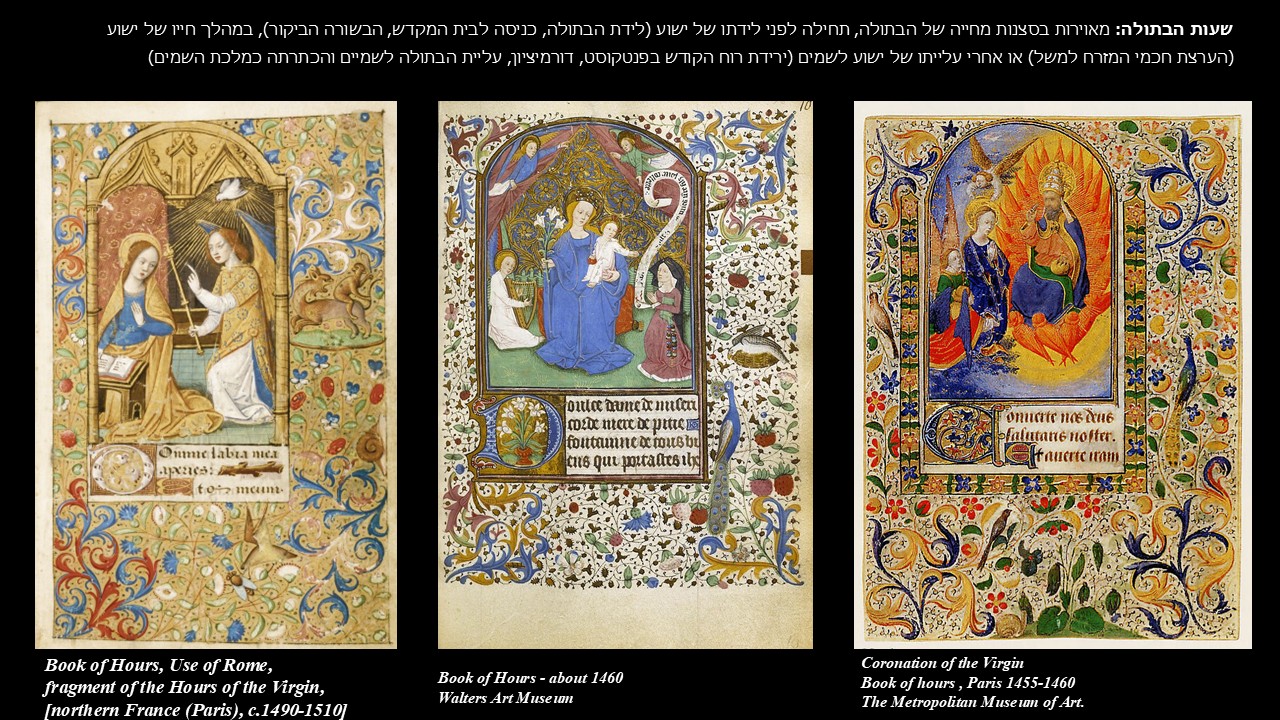 שעות הבתולה: מאוירות בסצנות מחייה של הבתולה, תחילה לפני לידתו של ישוע (לידת הבתולה, כניסה לבית המקדש, הבשורה הביקור), במהלך חייו של ישוע
(הערצת חכמי המזרח למשל) או אחרי עלייתו של ישוע לשמים (ירידת רוח הקודש בפנטקוסט, דורמיציון, עליית הבתולה לשמיים והכתרתה כמלכת השמים)
Domine labia mea
aperies:
t os meum
Book of Hours, Use of Rome,
fragment of the Hours of the Virgin,
[northern France (Paris), c.1490-1510]
Doulce dame de miseri
corde mere de pitie
fontainne de tous bi
ens qui portastes ihu
Book of Hours - about 1460
Walters Art Museum
Conuerte nos deus
salutaris noster.
Et auerte iram
Coronation of the Virgin
Book of hours , Paris 1455-1460
The Metropolitan Museum of Art.